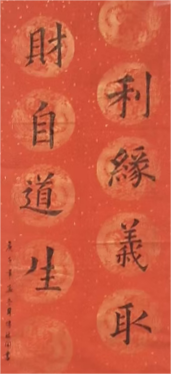 利緣義取
財自道生